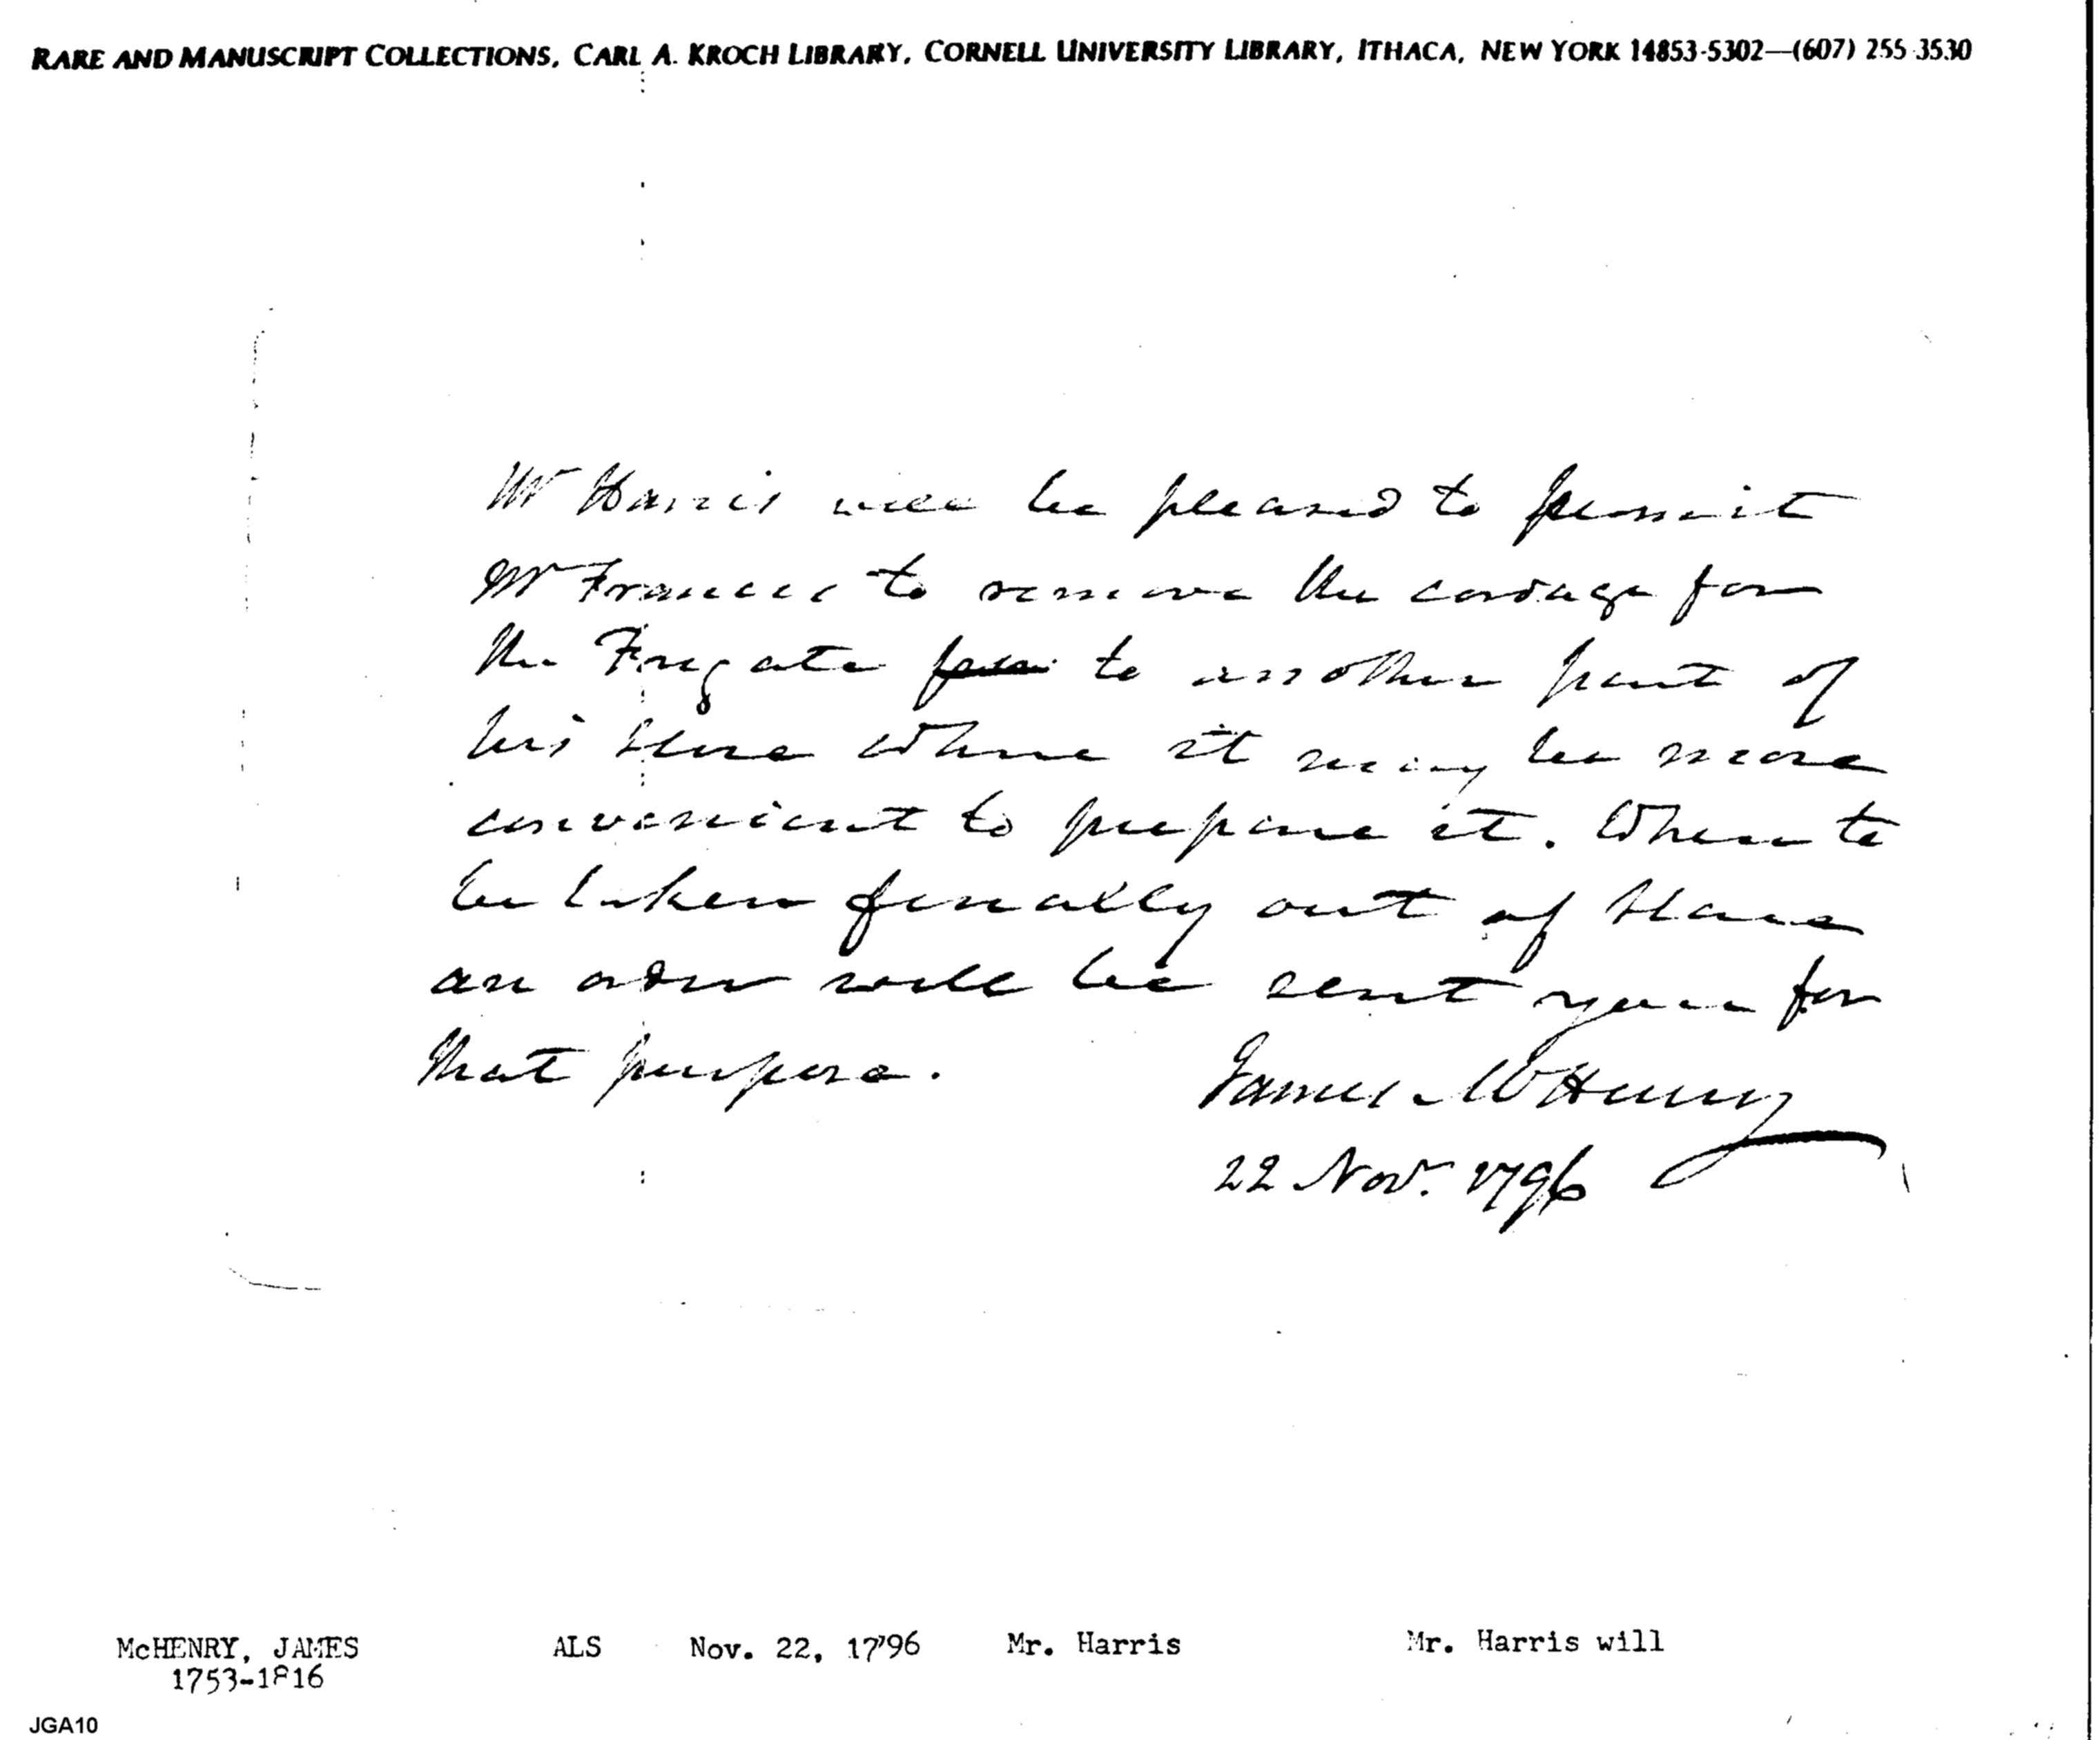 RARE AND MANUSCRIPT COLLECTIONS, CARL A. KROCH LIBRARY, CORNELL UNIVERSITY LIBRARY, ITHACA, NEW YORK 14853-5302—(607) 255-3530
Mr Harris will be pleased to permit
Mr Francis to remove the cordage for
the Frigate to another part of
his store where it may be more
convenient to prepare it. When to
be taken finally out of store
an order will be sent you for
that purpose.
James McHenry
22 Novr. 1796
McHENRY, JAMES ALS Nov. 22, 1796 Mr. Harris Mr. Harris will
1753-1816
JGA10